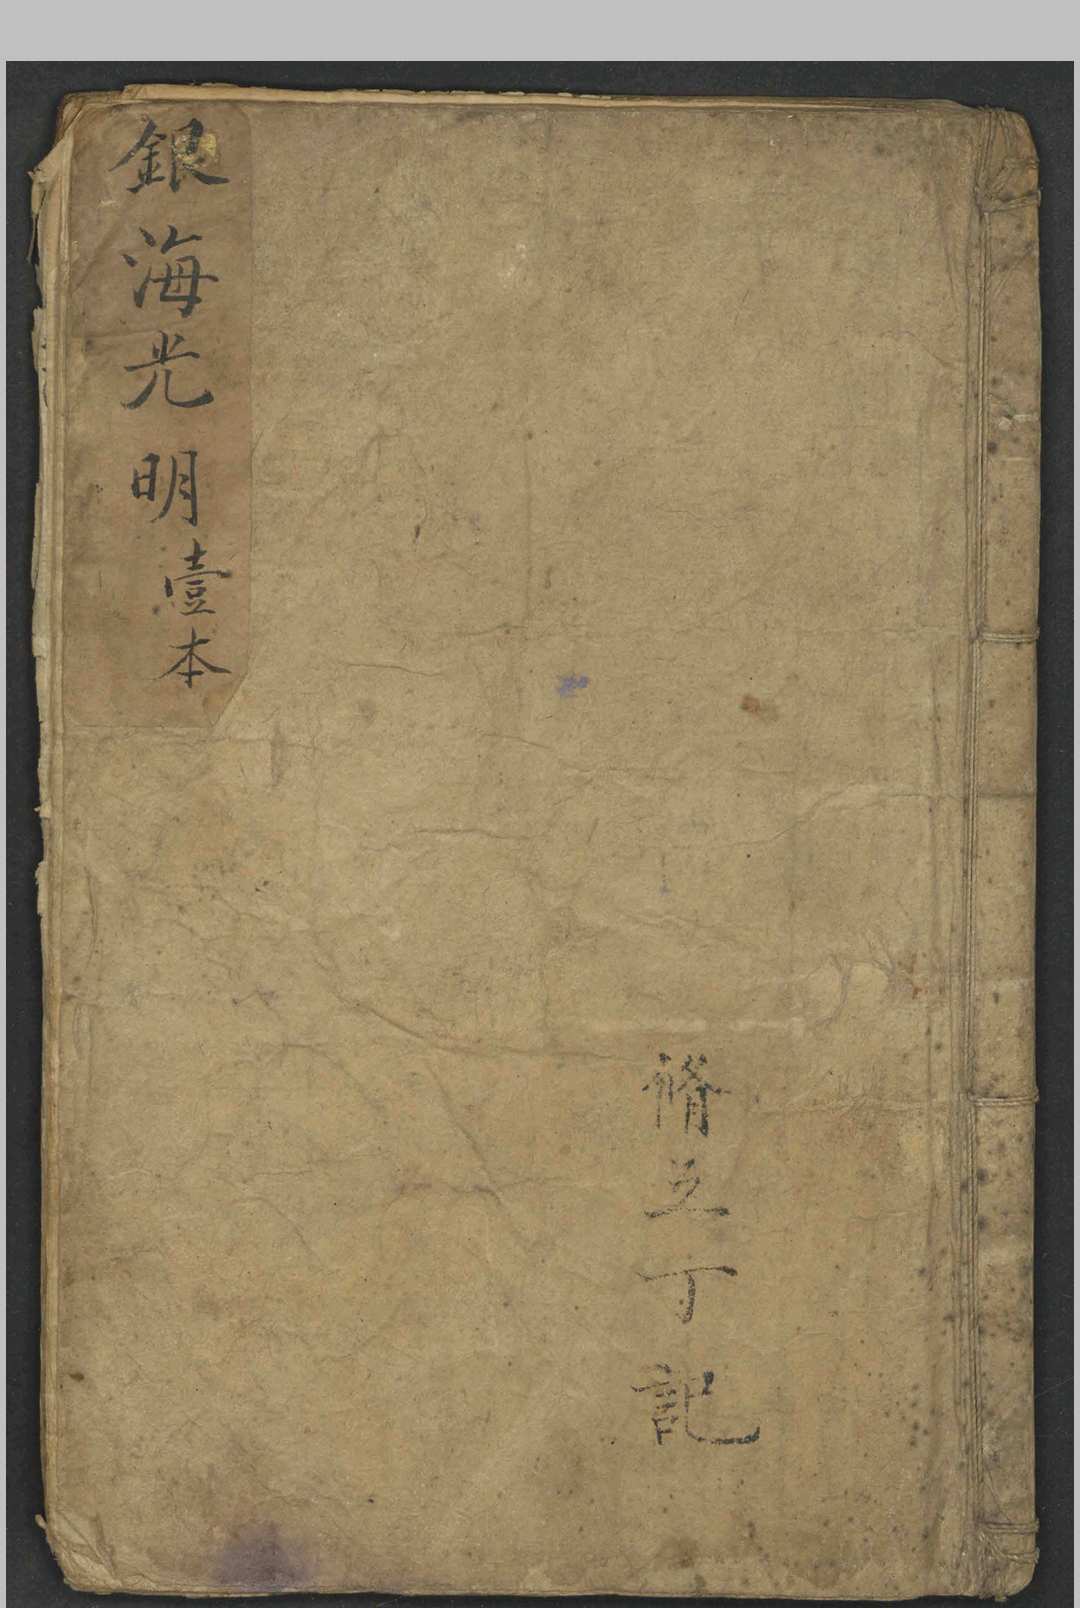 脩之丁記
銀海光明壹本